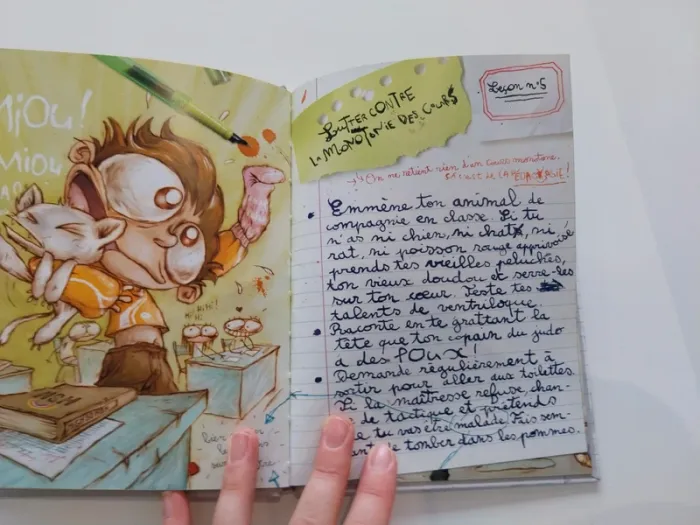 MIOU!
MIOU
HI! HI! HI!
bien
les
LUTTER CONTRE
LA MONOTONIE DES COURS
Leçon n°5
On ne retient rien d'un cours monotone.
Emmène ton animal de
compagnie en classe. Si tu
n'as ni chien, ni chat, ni
rat, ni poisson rouge apprivoisé
prends tes vieilles peluches,
ton vieux doudou et serre-les
sur ton cœur. Teste tes
talents de ventriloque.
Raconte en te grattant la
tête que ton copain du judo
a des POUX!
Demande régulièrement à
sortir pour aller aux toilettes.
Si la maîtresse refuse, chan-
de tactique et prétends
e tu vas être malade. Fais sem-
ant de tomber dans les pommes.